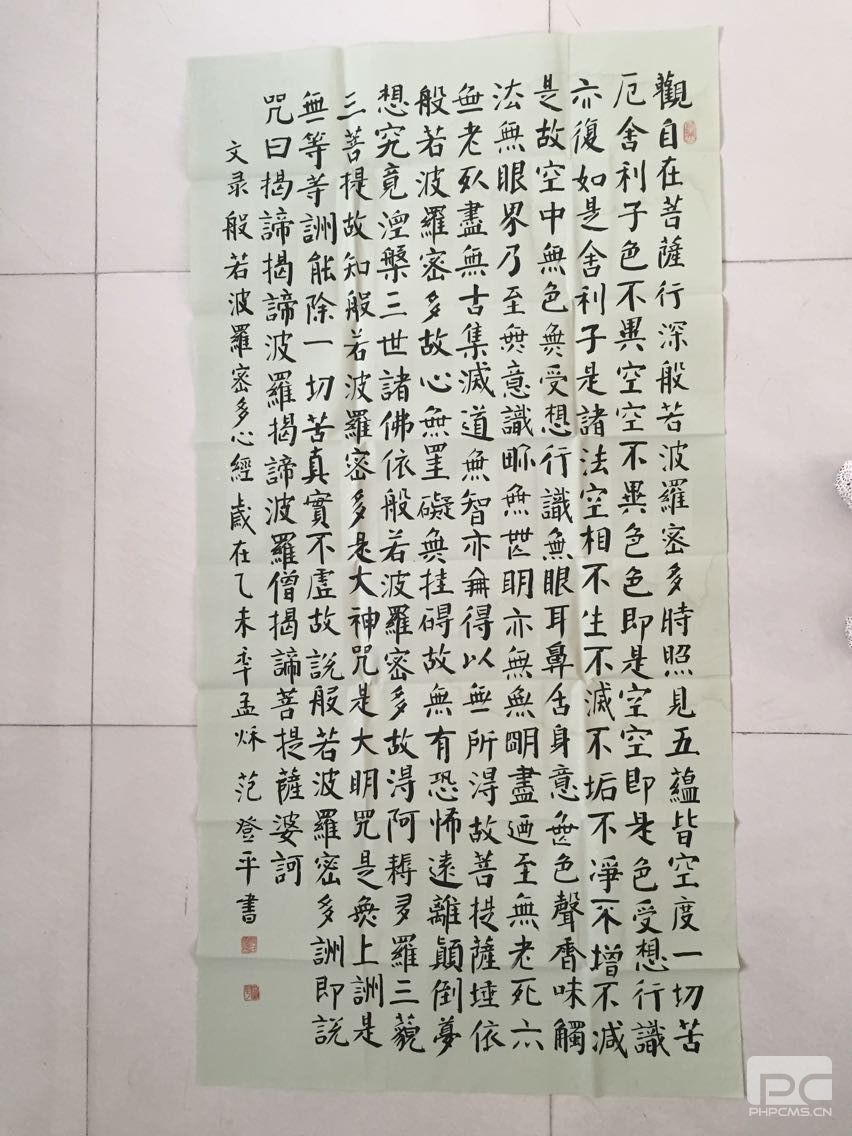 觀自在菩薩行深般若波羅密多時照見五蘊皆空度一切苦
厄舍利子色不異空空不異色色即是空空即是色受想行識
亦復如是舍利子是諸法空相不生不滅不垢不淨不增不減
是故空中無色無受想行識無眼耳鼻舌身意無色聲香味觸
法無眼界乃至無意識眎無無明亦無無明盡迺至無老死六
無老死盡無古集滅道無智亦無得以無所得故菩提薩埵依
般若波羅密多故心無罣礙無挂碍故無有恐怖遠離顛倒夢
想究竟涅槃三世諸佛依般若波羅密多故得阿耨多羅三藐
三菩提故知般若波羅密多是大神咒是大明咒是無上詶是
無等等詶能除一切苦真實不虛故說般若波羅密多詶即説
咒曰揭諦揭諦波羅揭諦波羅僧揭諦菩提薩婆訶
文录般若波羅密多心經歲在乙未年孟秌 范登平書
PC
PHPCMS.CN